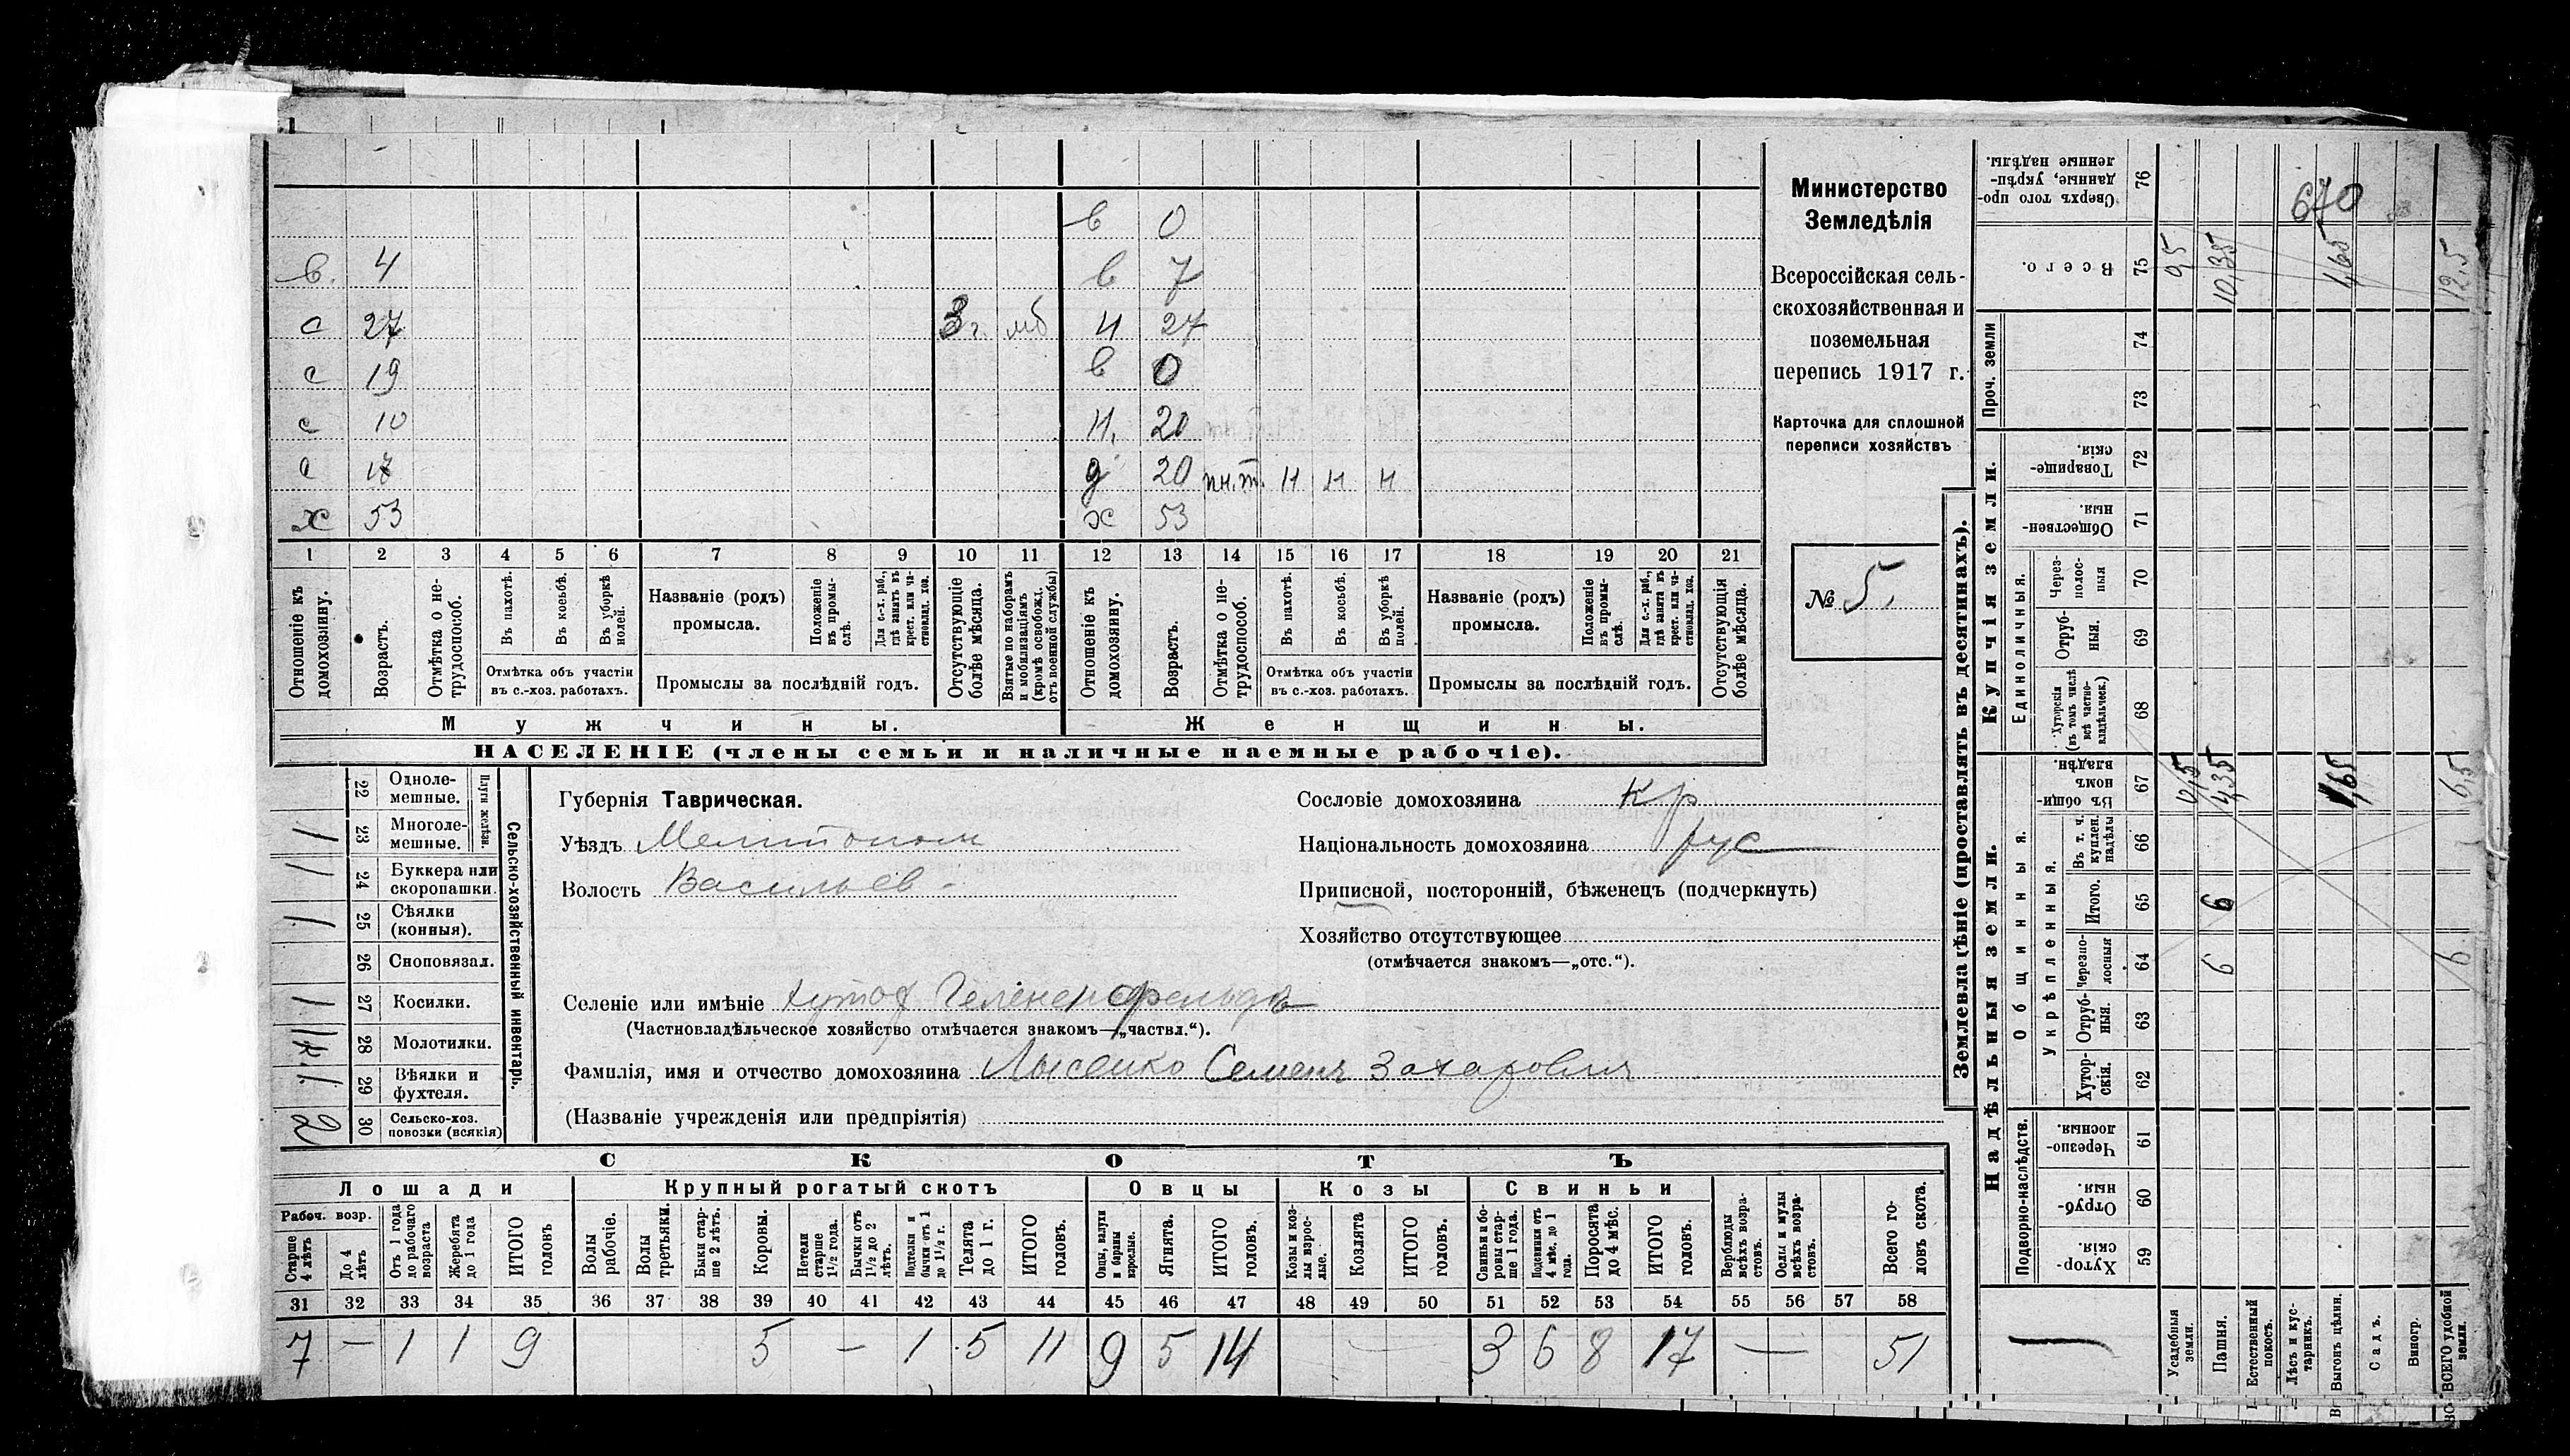 в 0
в. 4 в 7
с 27 3 г. мб н 27
с 19 в 0
с 10 н. 20
с 17 д 20 пн.т. н н н
х 53 х 53
1 2 3 4 5 6 7 8 9 10 11 12 13 14 15 16 17 18 19 20 21
Отношеніе къ домохозяину.
Возрастъ.
Отмѣтка о не-трудоспособ.
Въ пахотѣ.
Въ косьбѣ.
Въ уборкѣ полей.
Отмѣтка объ участіи
въ с.-хоз. работахъ.
Названіе (родъ)
промысла.
Положеніе въ промы-слѣ.
Для с.-х. раб., гдѣ занятъ въ крест. или ча-стновлад. хоз.
Промыслы за послѣдній годъ.
Отсутствующіе болѣе мѣсяца.
Взятые по наборамъ и мобилизаціямъ (кромѣ освобожд. отъ военной службы)
Отношеніе къ домохозяину.
Возрастъ.
Отмѣтка о не-трудоспособ.
Въ пахотѣ.
Въ косьбѣ.
Въ уборкѣ полей.
Отмѣтка объ участіи
въ с.-хоз. работахъ.
Названіе (родъ)
промысла.
Положеніе въ промы-слѣ.
Для с.-х. раб., гдѣ занята въ крест. или ча-стновлад. хоз.
Промыслы за послѣдній годъ.
Отсутствующія болѣе мѣсяца.
Мужчины. Женщины.
НАСЕЛЕНІЕ (члены семьи и наличные наемные рабочіе).
Министерство
Земледѣлія
Всероссійская сель-
скохозяйственная и
поземельная
перепись 1917 г.
Карточка для сплошной
переписи хозяйствъ
№ 5.
Сельско-хозяйственный инвентарь.
Плуги желѣзн.
22 Одноле-мешные.
1 23 Многоле-мешные.
1 24 Буккера или скоропашки.
1 25 Сѣялки (конныя).
26 Сноповязал.
1 27 Косилки.
28 Молотилки.
1 29 Вѣялки и фухтеля.
2 30 Сельско-хоз. повозки (всякія)
Губернія Таврическая.
Уѣздъ Мелитопольск
Волость Васильев-
Селеніе или имѣніе хутор Геленендфельдъ
(Частновладѣльческое хозяйство отмѣчается знакомъ—„частвл.“).
Фамилія, имя и отчество домохозяина Лысенко Семенъ Захарович
(Названіе учрежденія или предпріятія)
Сословіе домохозяина кр
Національность домохозяина рус
Приписной, посторонній, бѣженецъ (подчеркнуть)
Хозяйство отсутствующее
(отмѣчается знакомъ—„отс.“).
СКОТЪ
Лошади Крупный рогатый скотъ Овцы Козы Свиньи
Рабоч. возр.
Старше 4 лѣтъ
До 4 лѣтъ
Отъ 1 года до рабочаго возраста
Жеребята до 1 года
ИТОГО головъ
Волы рабочіе.
Волы третьяки.
Быки стар-ше 2 лѣтъ.
Коровы.
Нетели старше 1½ года.
Бычки отъ 1½ до 2 лѣтъ.
Подтелки и бычки отъ 1 до 1½ г.
Телята до 1 г.
ИТОГО головъ.
Овцы, валухи и бараны взрослые.
Ягнята.
ИТОГО головъ.
Козы и коз-лы взрос-лые.
Козлята
ИТОГО головъ.
Свиньи и бо-ровы стар-ше 1 года.
Подсвинки отъ 4 мѣс. до 1 года.
Поросята до 4 мѣс.
ИТОГО головъ.
Верблюды всѣхъ возра-стовъ.
Ослы и мулы всѣхъ возра-стовъ.
Всего го-ловъ скота.
31 32 33 34 35 36 37 38 39 40 41 42 43 44 45 46 47 48 49 50 51 52 53 54 55 56 57 58
7 — 1 1 9 5 — 1 5 11 9 5 14 — 3 6 8 17 — 51
Землевладѣніе (проставлять въ десятинахъ).
Надѣльныя земли. Купчія земли. Проч. земли
Подворно-наслѣдств.
Общинныя.
Укрѣпленныя.
Единоличныя.
59 Хутор-скія.
60 Отруб-ныя.
61 Черезпо-лосныя.
62 Хутор-скія.
63 Отруб-ныя.
64 Черезпо-лосныя
65 Итого.
66 Въ т. ч. куплен. надѣлы
67 Въ общин-номъ владѣн.
68 Хуторскія (въ томъ числѣ всѣ частно-владѣльческ.)
69 Отруб-ныя.
70 Через-полос-ныя
71 Обществен-ныя.
72 Товарище-скія.
73
74
75 Всего.
76 Сверхъ того про-данные, укрѣп-ленные надѣлы.
Усадебныя земли.
Пашня. 6 6 4,35 10,35
Естественный покосъ.
Лѣсъ и кус-тарникъ.
Выгонъ цѣлин. 1,65 1,65
Садъ.
Виногр.
ВСЕГО удобной земли. 6. 6,5 12,5
670